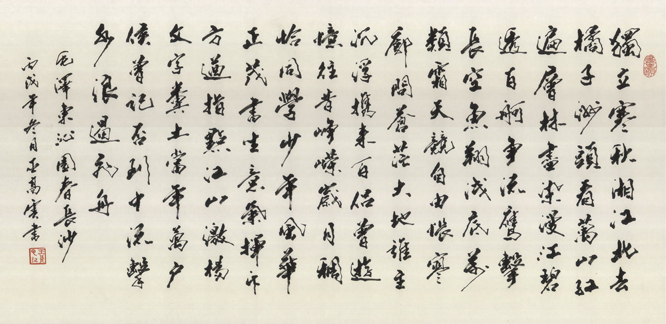 獨立寒秋湘江北去
橘子洲頭看萬山紅
遍層林盡染漫江碧
透百舸争流鷹擊
長空魚翔淺底萬
類霜天競自由悵寥
廓問蒼茫大地誰主
沉浮攜來百侶曾遊
憶往昔崢嶸歲月稠
恰同學少年風華
正茂書生意氣揮斥
方遒指點江山激揚
文字糞土當年萬户
侯曾記否到中流擊
水浪遏飛舟
毛澤東沁園春長沙
丙戌年冬月書